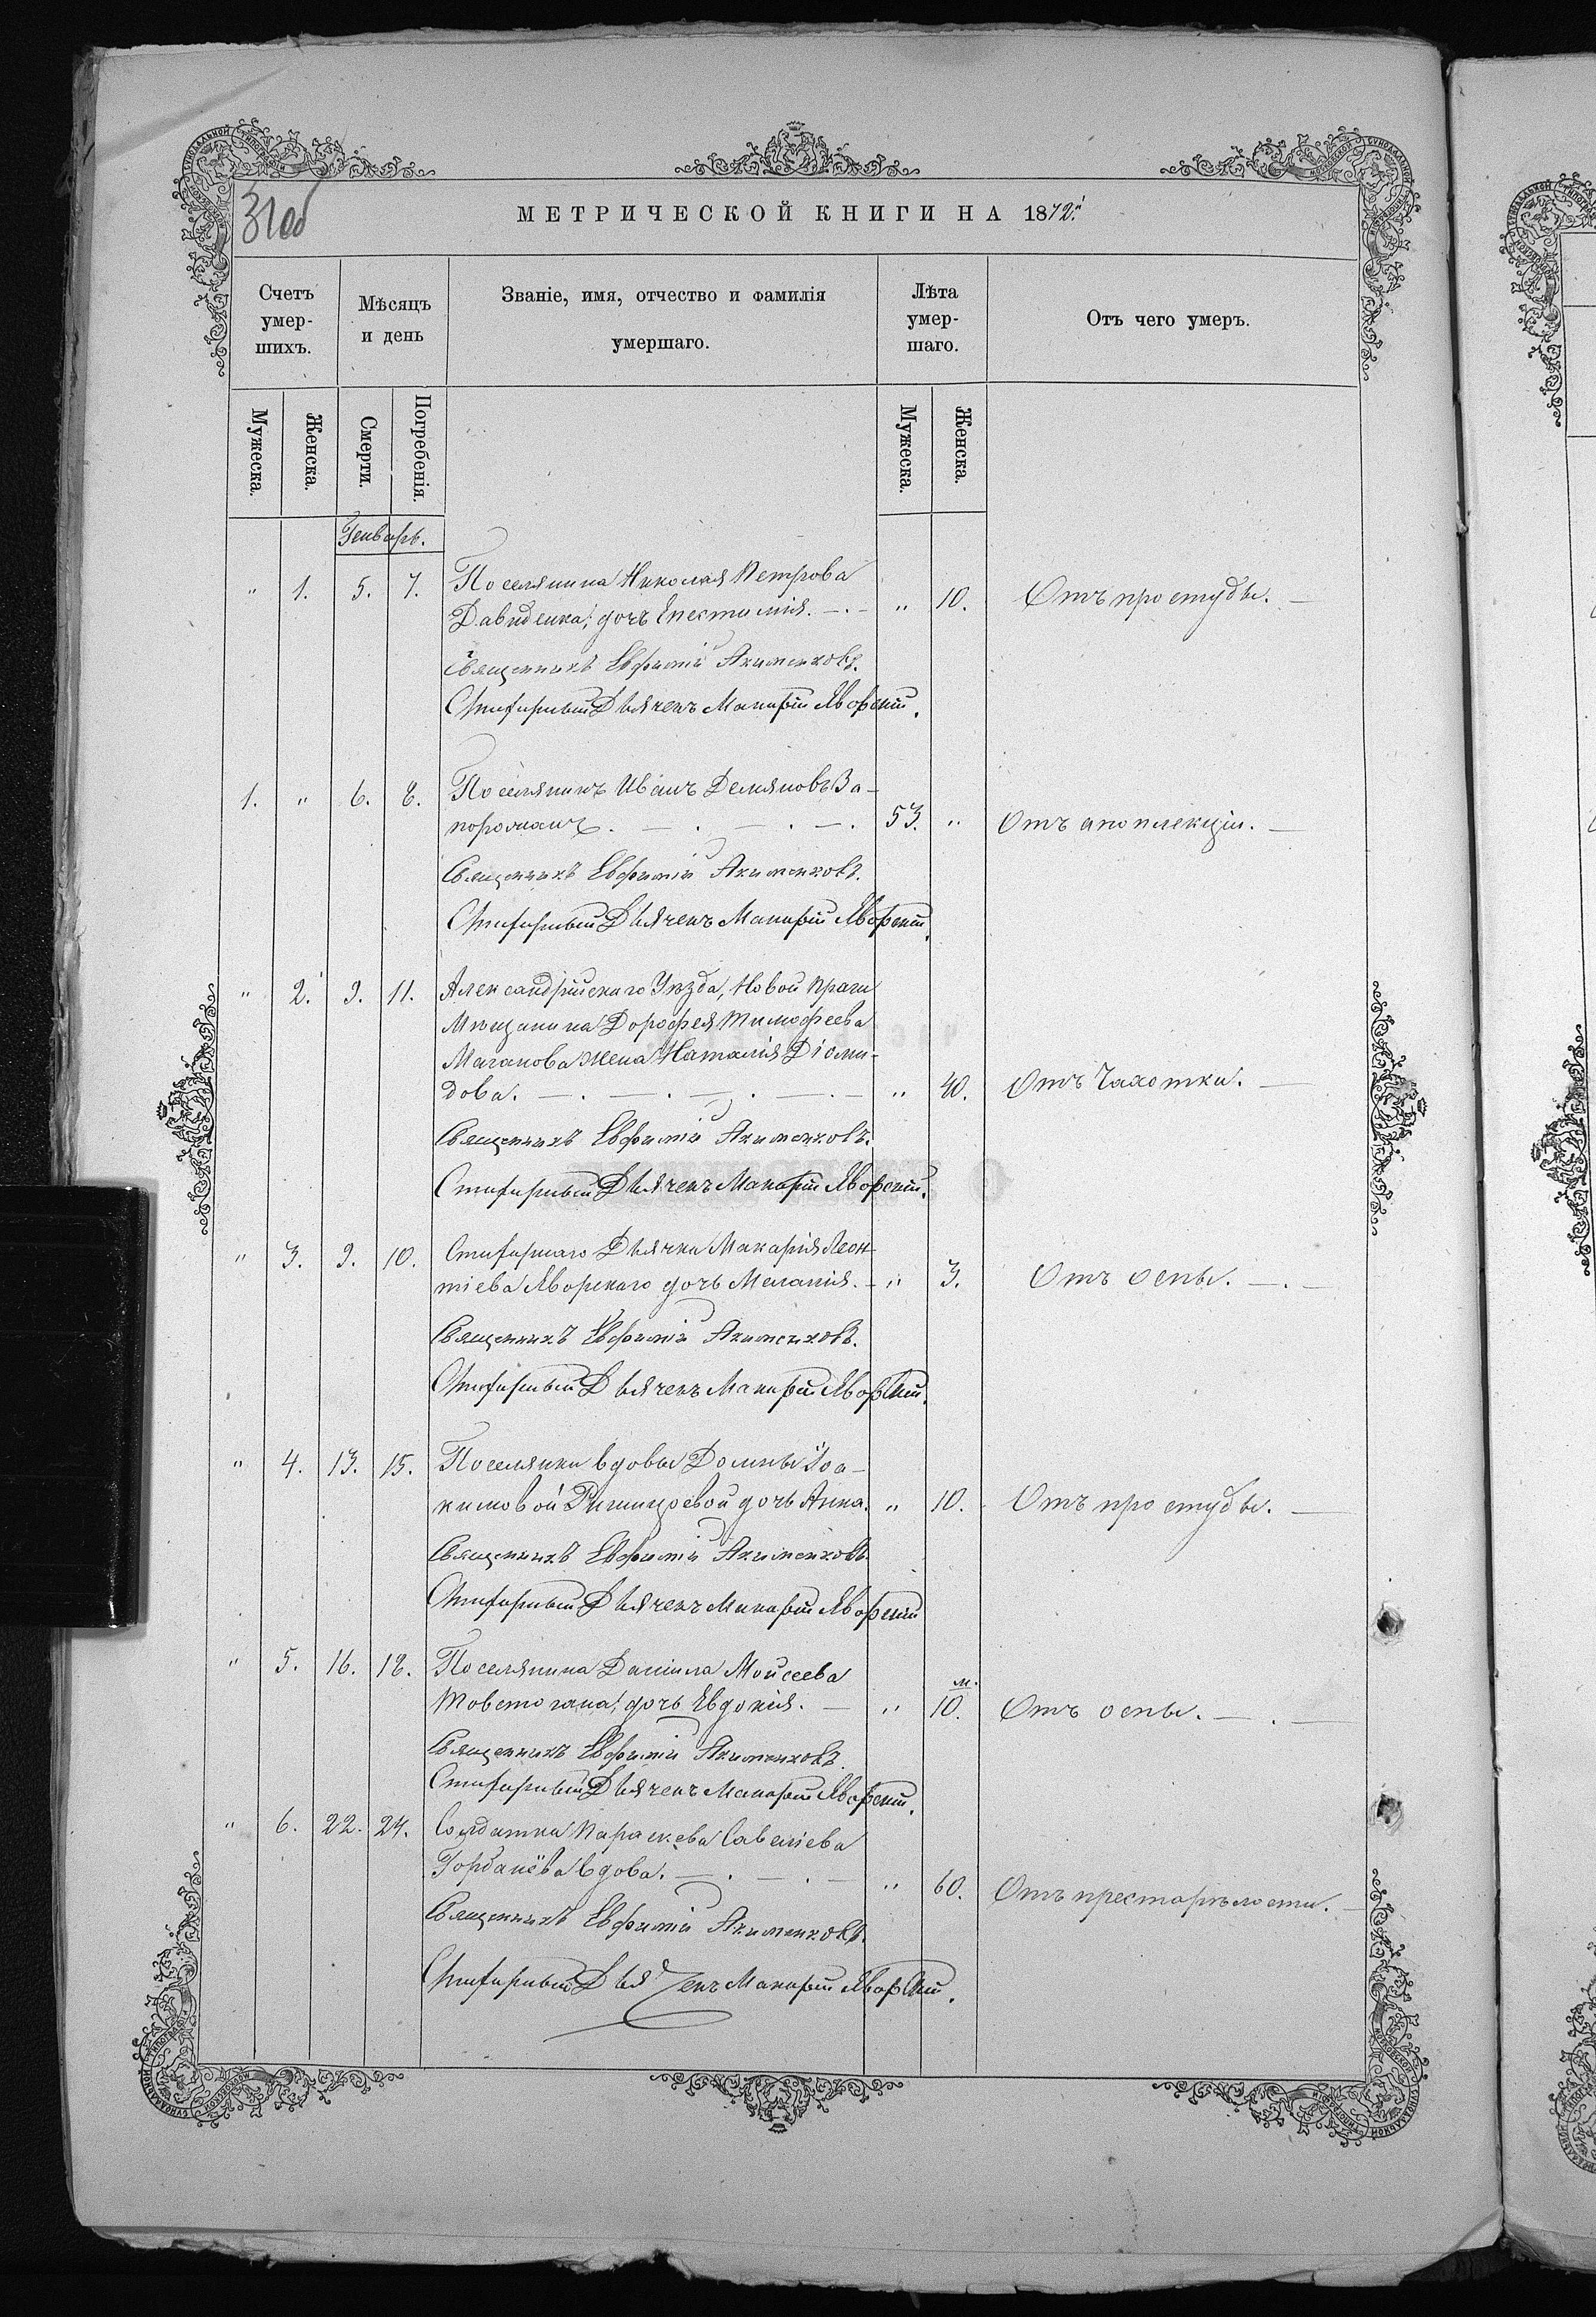 31об
МЕТРИЧЕСКОЙ КНИГИ НА 1872й
Счетъ умер-шихъ. Мѣсяцъ и день Званіе, имя, отчество и фамилія умершаго. Лѣта умер-шаго. Отъ чего умеръ.
Мужеска. Женска. Смерти. Погребенія. Мужеска. Женска.
Генварь.
" 1. 5. 7. Поселянина Николая Петрова
Давиденка, дочь Епестимія. " 10. Отъ простуды.
Священникъ Евфимій Акименковъ.
Стихарный Дьячекъ Макарій Яворскій.
1. " 6. 8. Поселянинъ Иванъ Демяновъ За-
порожанъ. 53. " Отъ апоплекціи.
Священникъ Евфимій Акименковъ.
Стихарный Дьячекъ Макарій Яворскій.
" 2. 9. 11. Александрійскаго Уѣзда, Новой Праги
Мѣщанина Дорофея Тимофеева
жена Наталія Діоми-
дова. " 40. Отъ Чахотки.
Священникъ Евфимій Акименковъ.
Стихарный Дьячекъ Макарій Яворскій.
" 3. 9. 10. Стихарнаго Дьячка Макарія Леон-
тіева Яворскаго дочь Меланія. " 3. Отъ оспы.
Священникъ Евфимій Акименковъ.
Стихарный Дьячекъ Макарій Яворскій.
" 4. 13. 15. Поселянки вдовы Домны Іоа-
кимовой дочь Анна. " 10. Отъ простуды.
Священникъ Евфимій Акименковъ
Стихарный Дьячекъ Макарій Яворскій
" 5. 16. 18. Поселянина Даніила Мойсеева
Товстогана, дочь Евдокія. " м. 10. Отъ оспы.
Священникъ Евфимій Акименковъ.
Стихарный Дьячекъ Макарій Яворскій.
" 6. 22. 24. Солдатка Параскева Савеліева
Горбанёва вдова. " 60. Отъ престарѣлости.
Священникъ Евфимій Акименковъ.
Стихарный Дьячекъ Макарій Яворскій.